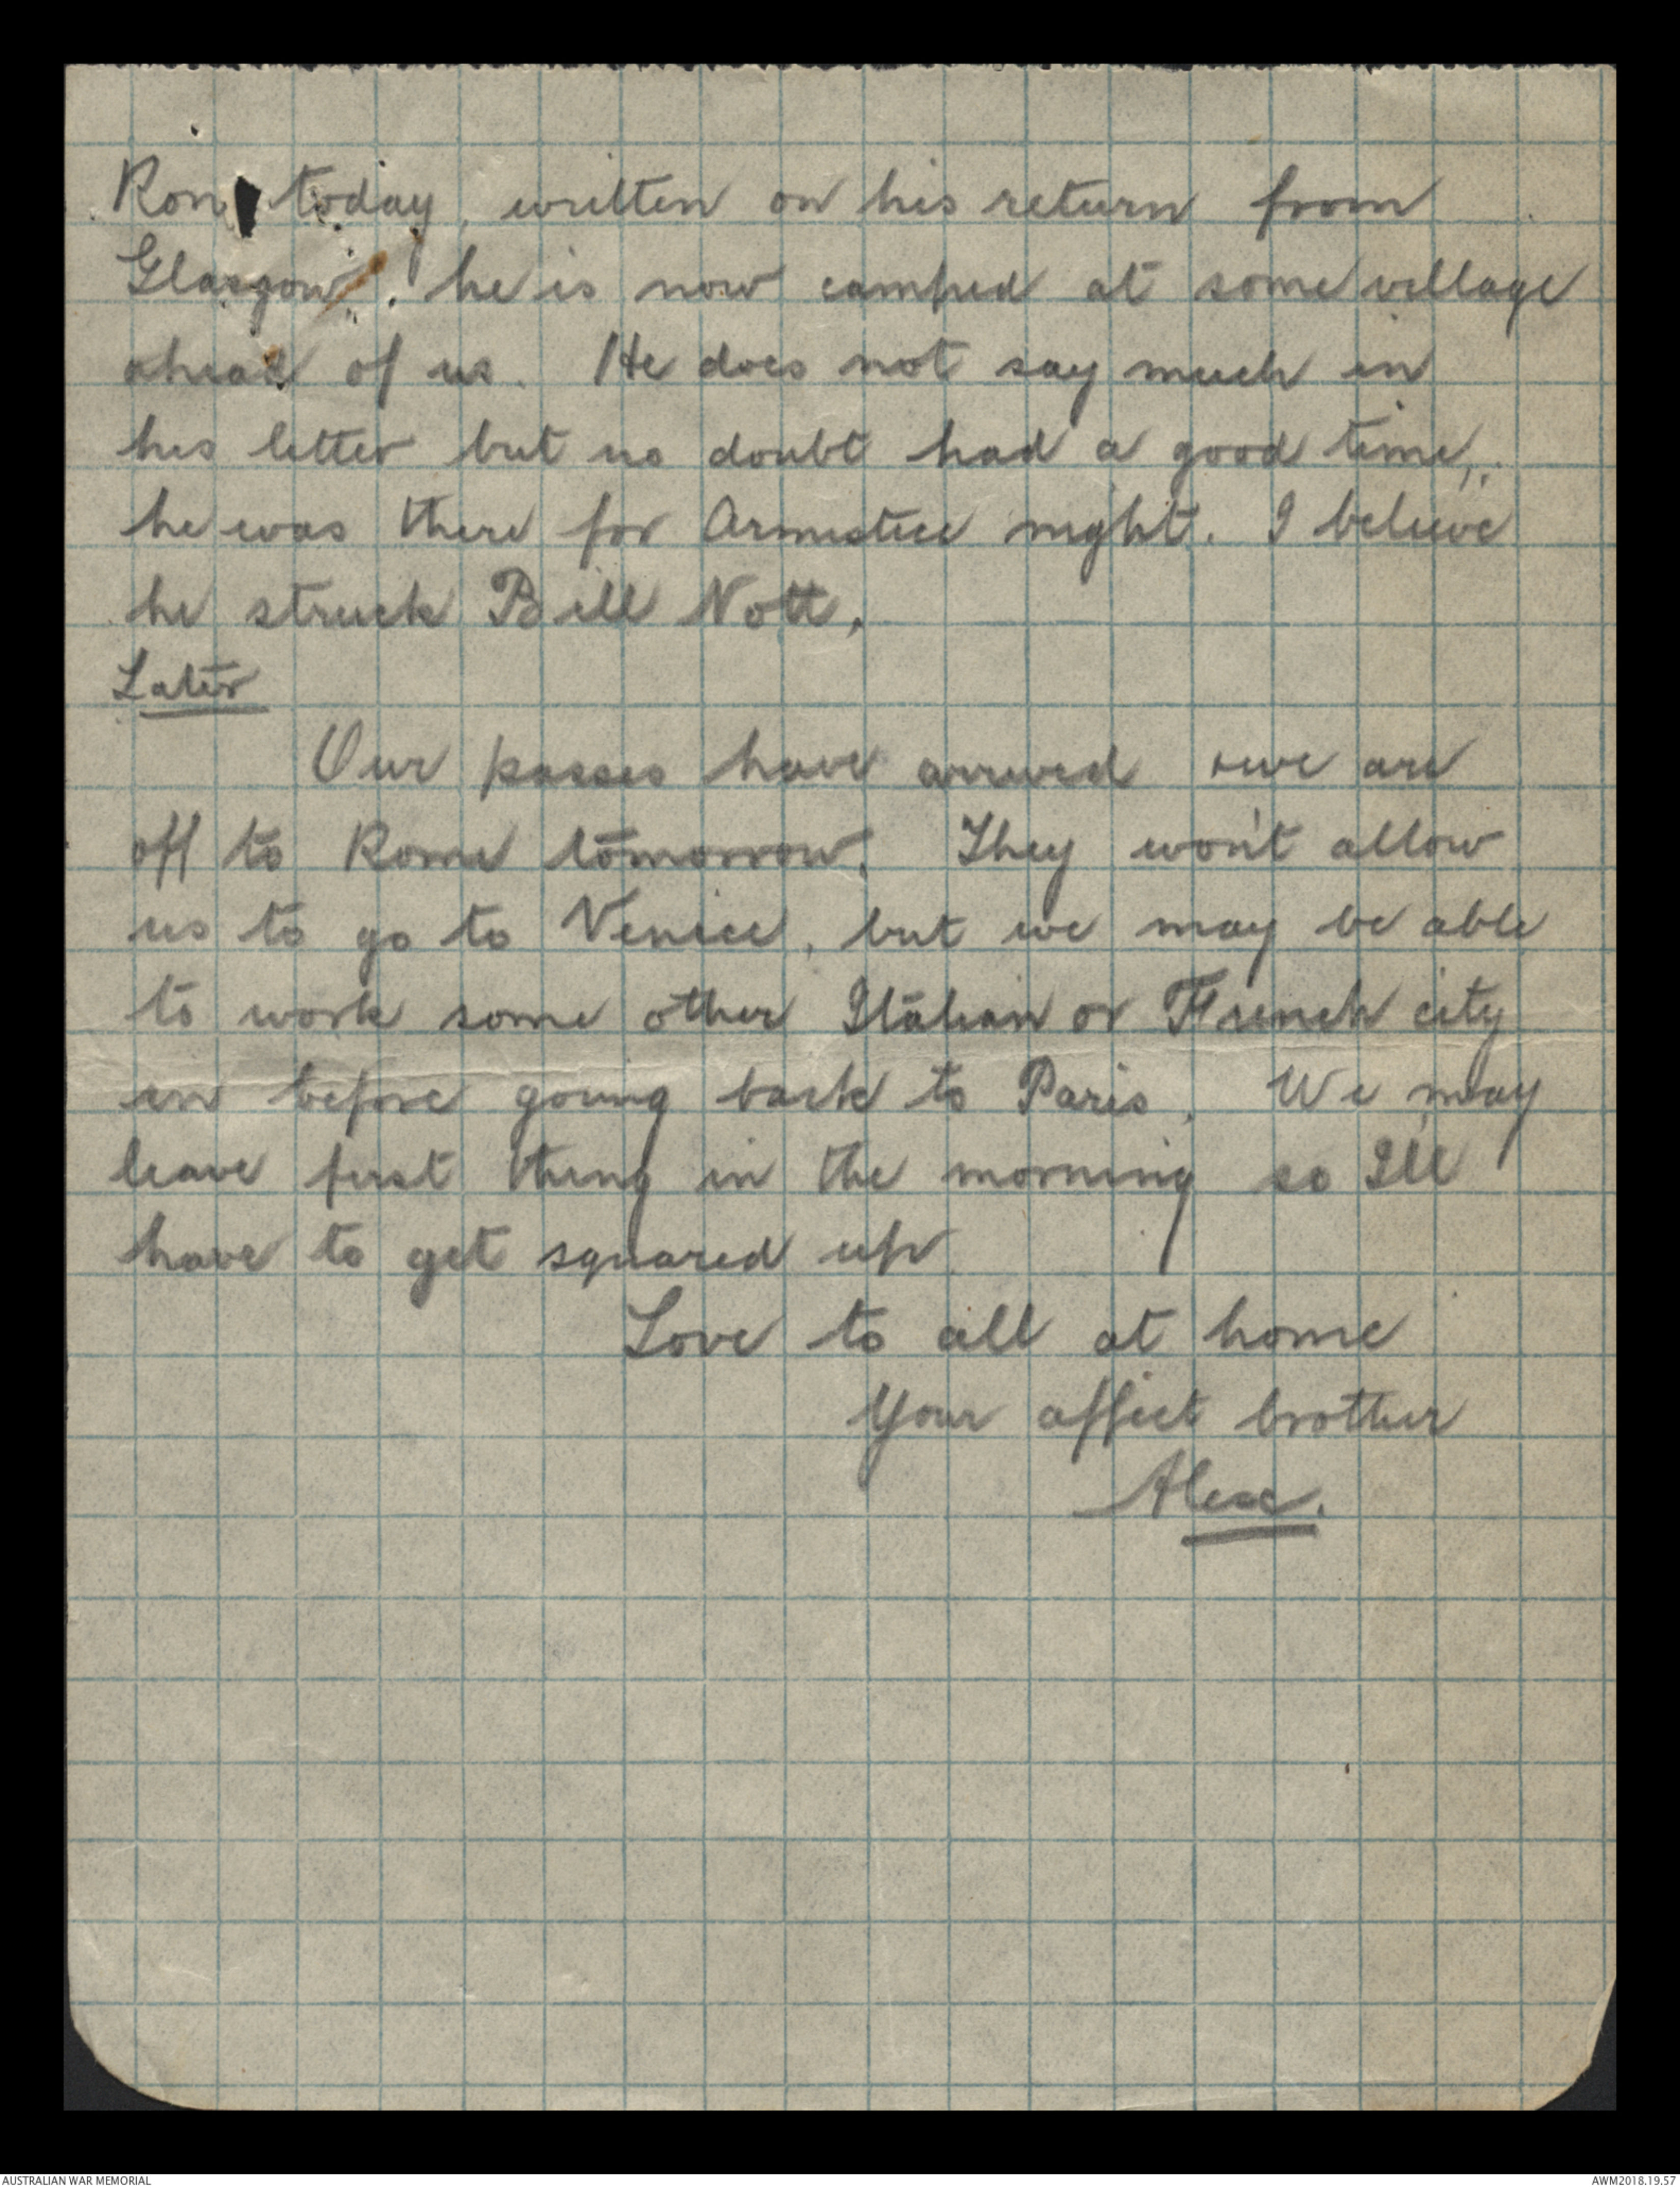 Ron today, written on his return from
Glasgow, he is now camped at some village
ahead of us. He does not say much in
his letter but no doubt had a good time,
he was there for Armistice night. I believe
he struck Bill Nott.
Later
Our passes have arrived & we are
off to Rome tomorrow. They won't allow
us to go to Venice, but we may be able
to work some other Italian or French city
in before going back to Paris. We may
leave first thing in the morning so I'll
have to get squared up.
Love to all at home
Your affect brother
Alex.
AUSTRALIAN WAR MEMORIAL
AWM2018.19.57